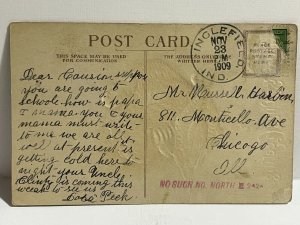 POST CARD
THIS SPACE MAY BE USED
FOR COMMUNICATION
THE ADDRESS ONLY
INGLEFIELD
NOV
23
M
1909
IND.
Dear Cousin
you are going to
schoole how is papa
I you & your
mama must write
to me we are all
well at present is
getting cold here to
night your Uncle
is coming this
weak to see us
Peck
Mr Russell
811. Monticello Ave
Chicogo
Ill
NO SUCH NO. NORTH